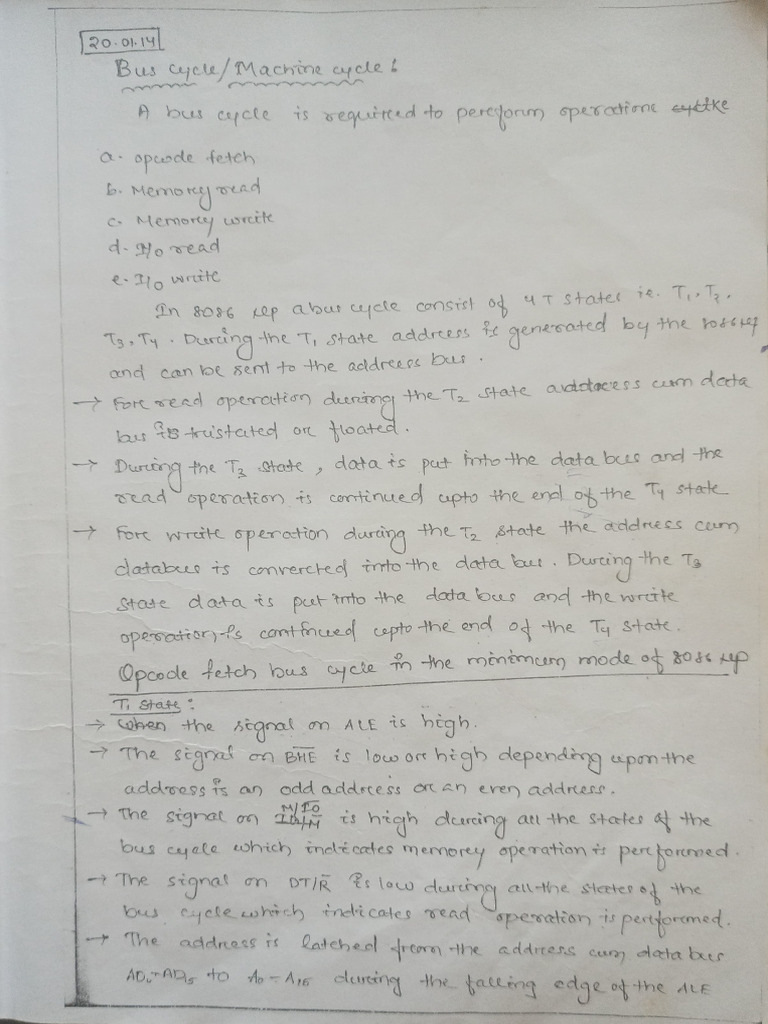 20.01.14
Bus cycle/Machine cycle:
A bus cycle is required to perform operations like
a. opcode fetch
b. Memory read
c. Memory write
d. I/O read
e. I/O write
In 8086 μp a bus cycle consist of 4 T states ie. T1, T2,
T3, T4. During the T1 state address is generated by the 8086 μp
and can be sent to the address bus.
→ For read operation during the T2 state address cum data
bus is tristated or floated.
→ During the T3 state, data is put into the data bus and the
read operation is continued upto the end of the T4 state
→ For write operation during the T2 state the address cum
databus is converted into the data bus. During the T3
state data is put into the data bus and the write
operation is continued upto the end of the T4 state.
Opcode fetch bus cycle in the minimum mode of 8086 μp
T1 state:
→ When the signal on ALE is high.
→ The signal on B̅H̅E̅ is low or high depending upon the
address is an odd address or an even address.
→ The signal on M/I̅O̅ is high during all the states of the
bus cycle which indicates memory operation is performed.
→ The signal on DT/R̅ is low during all the states of the
bus cycle which indicates read operation is performed.
→ The address is latched from the address cum data bus
AD0-AD15 to A0-A15 during the falling edge of the ALE